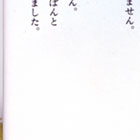 ません。
ん。
ぽんと
ました。